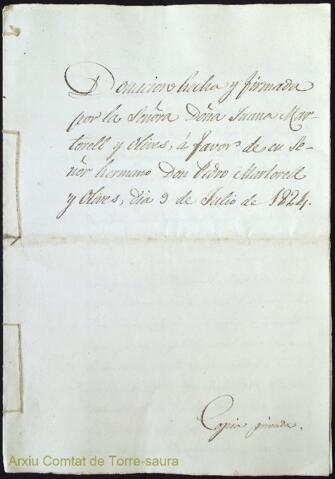 Donacion hecha y firmada
por la Señora Doña Juana Mar-
torell y Olives, á favor de su Se-
ñor hermano Don Pedro Martorell
y Olives, dia 9 de Julio de 1824.
Copia privada.
Arxiu Comtat de Torre-saura